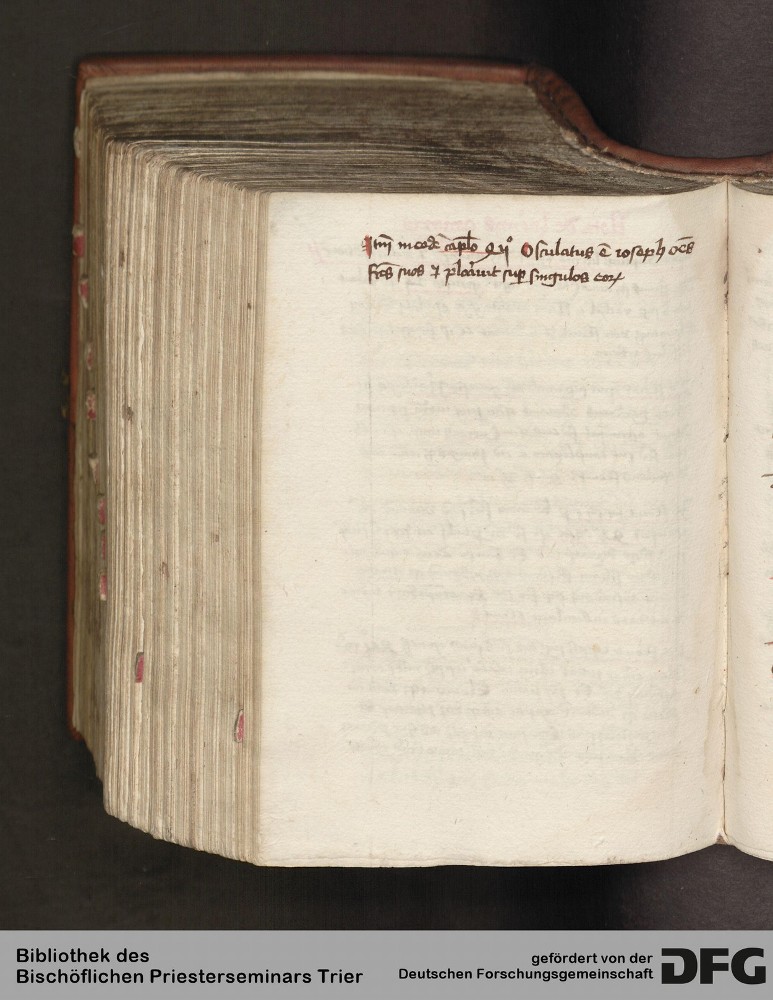 Itm̄ in eod̄ caplo Osculatus ē ioseph oēs
frēs suos ⁊ plorauit sup singulos eoꝝ
Bibliothek des
Bischöflichen Priesterseminars Trier
gefördert von der
Deutschen Forschungsgemeinschaft
DFG